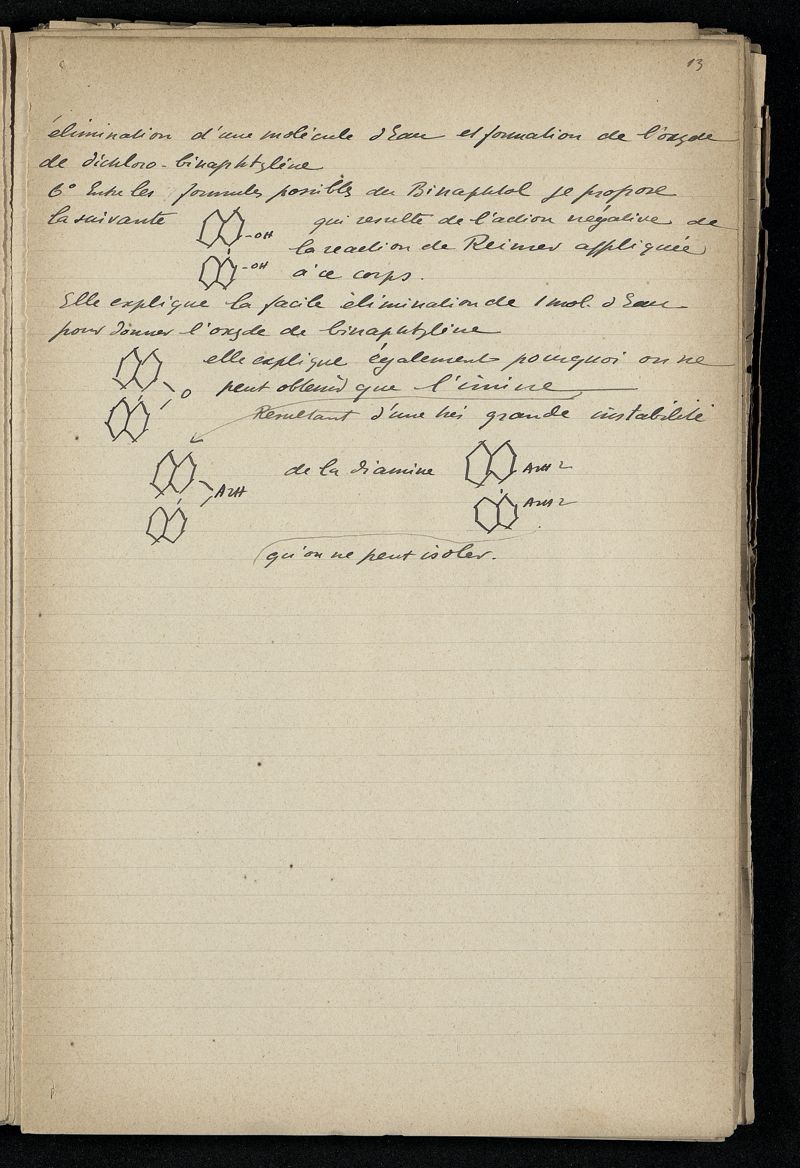 13
élimination d'une molécule d'Eau et formation de l'oxyde
de dichloro-binaphtylène
6° Entre les formules possibles du Binaphtol je propose
la suivante qui resulte de l'action négative de
-OH
la reaction de Reimer appliquée
-OH
à ce corps.
Elle explique la facile élimination de 1 mol. d'Eau
pour donner l'oxyde de binaphtylène
elle explique également pourquoi on ne
O
peut obtenir que l'imine
Resultant d'une très grande instabilité
AzH
de la diamine
AzH2
AzH2
qu'on ne peut isoler.